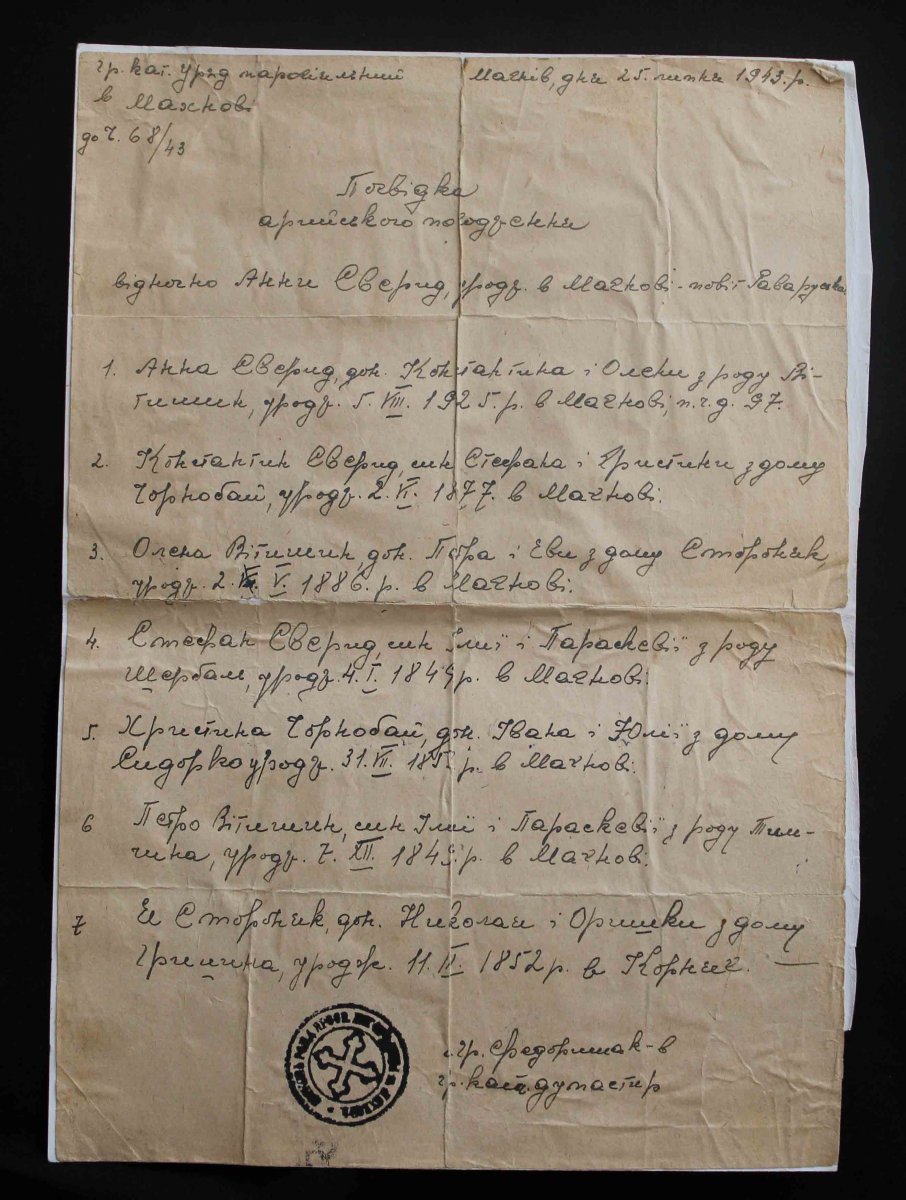 гр. кат. уряд парохіяльний
в Махнові
до ч. 68/43
Махнів, дня 25. липня 1943. р.
Посвідка
арийського походження
відносно Анни Сверид, уродж. в Махнові - повіт Рава руська
1. Анна Сверид, дон. Константина і Олени з роду Ві-
тишин, уродж. 5. VIII. 1925. р. в Махнові, п. ч. д. 97.
2. Константин Сверид, син Стефана і Христини з дому
Чорнобай, уродж. 2. VI. 1877. в Махнові.
3. Олена Вітишин, дон. Петра і Еви з дому Сторонык,
уродж. 2. V. 1886. р. в Махнові.
4. Стефан Сверид, син Ілії і Параскевії з роду
уродж. 4. I. р. в Махнові.
5. Христина Чорнобай, дон. Івана і Юлії з дому
Сидорко уродж. 31. р. в Махнові.
6 Петро Вітишин, син Ілії і Параскевії з роду Тим-
чина, уродж. 7. XII. р. в Махнові.
7 дон. Николая і Оришки з дому
уродж. 11. 1852 р. в
гр. кат. душпастир